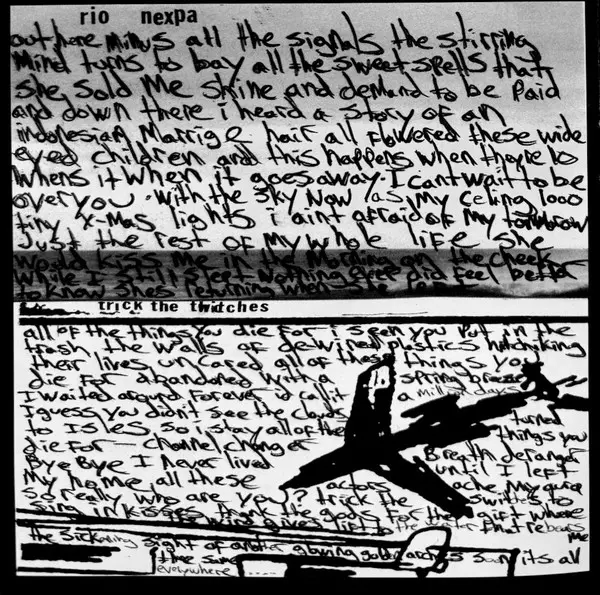 rio nexpa
out here minus all the signals the stirring
Mind turns to bay all the sweet spells that
she sold Me shine and demand to be Paid
and down there i heard a story of an
indonesian Marrige hair all Flowered these wide
eyed children and this happens when they're 10
whens it when it goes away. I cant wait to be
over you. with the sky Now as My ceiling 1000
tiny X-mas lights i aint afraid of My tomorrow
Just the rest of My whole life she
Would kiss Me in the Morning on the cheek
while I still sleep Nothing ever did feel better
to know shes returning when she
trick the twitches
all of the things you die for i seen you Put in the
trash the walls of de-wired plastics hitchhiking
their lives un cared all of these things you
die For abandoned with a spring breeze
I waited around Forever id call it a million days
I guess you didn't see the clouds turned
to Isles. So i stay all of the things you
die for — channel changer Breath deranger
Bye Bye I Never lived until I left
My home, all these actors ache My area
So really who are you? trick the switches to
sing in kisses thank the gods for the gift where
the wind gives lift to the water that rebears Me
the sickening sight of another glowing golden arches soon its all
the same
everywhere .....